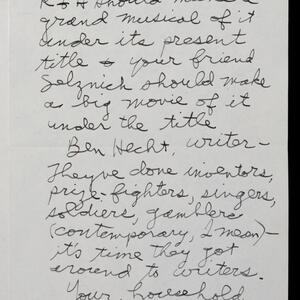 R & H should make a
grand musical of it
under its present
title & your friend
Selznick should make
a big movie of it
under the title
Ben Hecht, writer—
They've done inventors,
prize-fighters, singers,
soldiers, gamblers
(contemporary, I mean)—
it's time they got
around to writers.
Your household